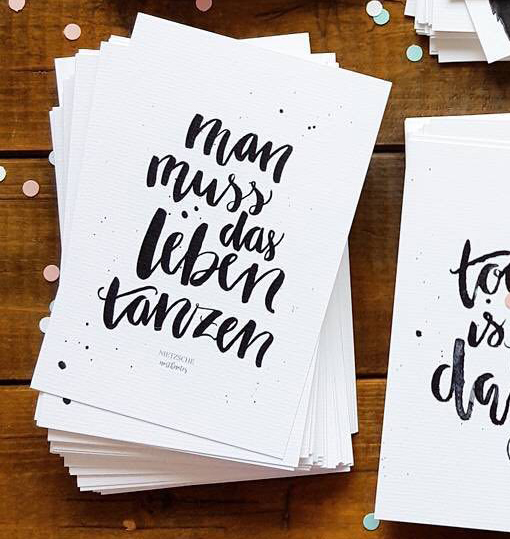 man
muss
das
leben
tanzen
NIETZSCHE
is